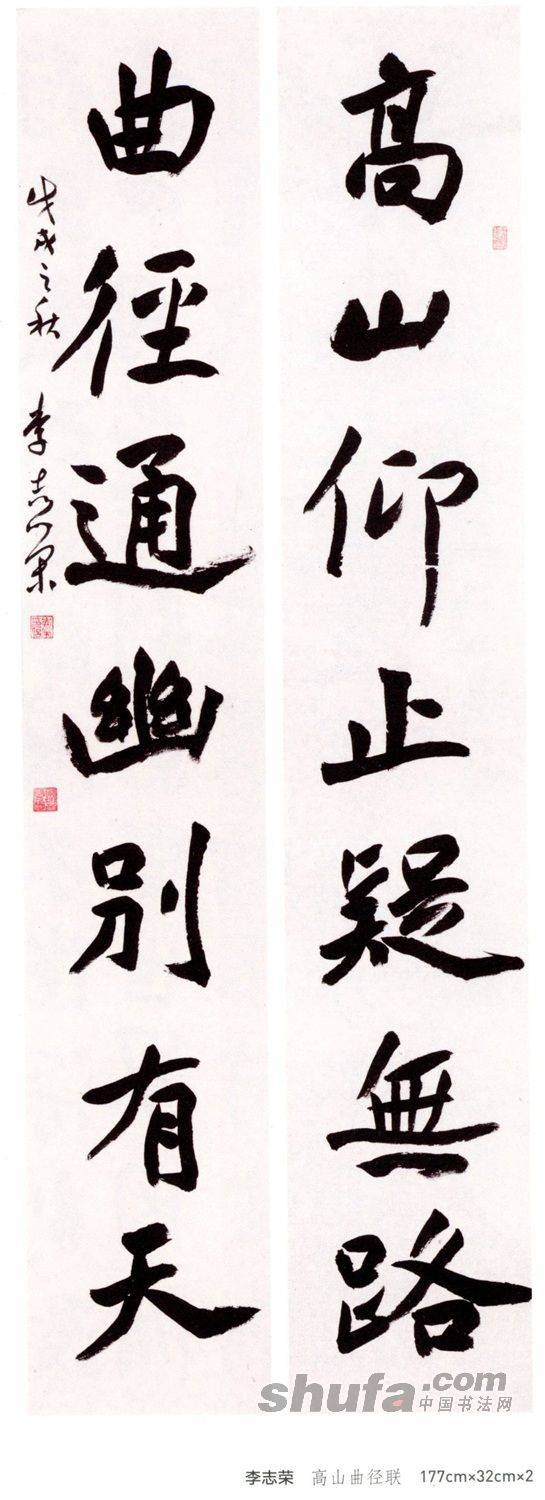 高山仰止疑無路
曲径通幽别有天
戊戌之秋 李志荣
shufa.com
中国书法网
李志荣 高山曲径联 177cm×32cm×2